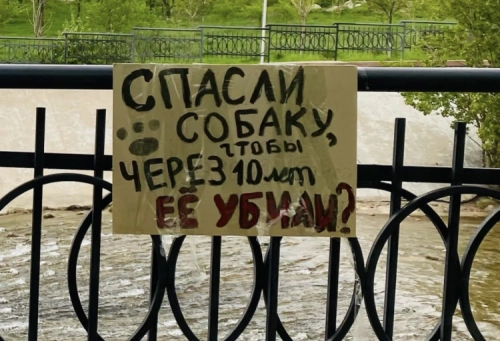 СПАСЛИ
СОБАКУ,
чтобы
ЧЕРЕЗ 10 лет
ЕЁ УБИЛИ?